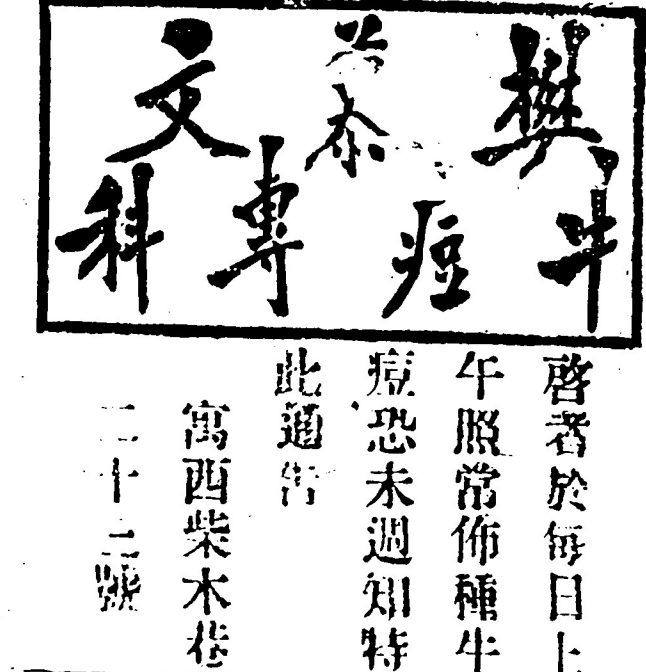 樊春文
牛痘專科
啓者於每日上
午照常佈種牛
痘恐未週知特
此通告
寓西柴木巷
二十二號